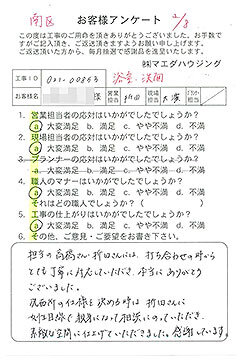 南区 お客様アンケート 2/8
この度は工事のご用命を頂きありがとうございました。お手数で
すがご記入頂き、ご返送頂きますようお願い申し上げます。
ご返送頂いた方から、毎月抽選で感謝品を進呈いたします。
㈱マエダハウジング
工事ID 浴室・洗面
お客様名 営業担当 現場担当
1. 営業担当者の応対はいかがでしたでしょうか?
a 大変満足 b. 満足 c. やや不満 d. 不満
2. 現場担当者の応対はいかがでしたでしょうか?
a 大変満足 b. 満足 c. やや不満 d. 不満
3. プランナーの応対はいかがでしたでしょうか?
a. 大変満足 b. 満足 c. やや不満 d. 不満
4. 職人のマナーはいかがでしたでしょうか?
a 大変満足 b. 満足 c. やや不満 d. 不満
それはどの職人でしょうか?( )
5. 工事の仕上がりはいかがでしたでしょうか?
a 大変満足 b. 満足 c. やや不満 d. 不満
6. その他、ご意見・ご要望をお書き下さい。
担当の高橋さん、折田さんには、打ち合わせの時から
とても丁寧に対応していただき、本当にありがとう
ございました。
洗面所の仕様を決める時は折田さんに
女性目線で親身になって相談にのっていただき、
素敵な空間に仕上げていただきました。感謝しています。